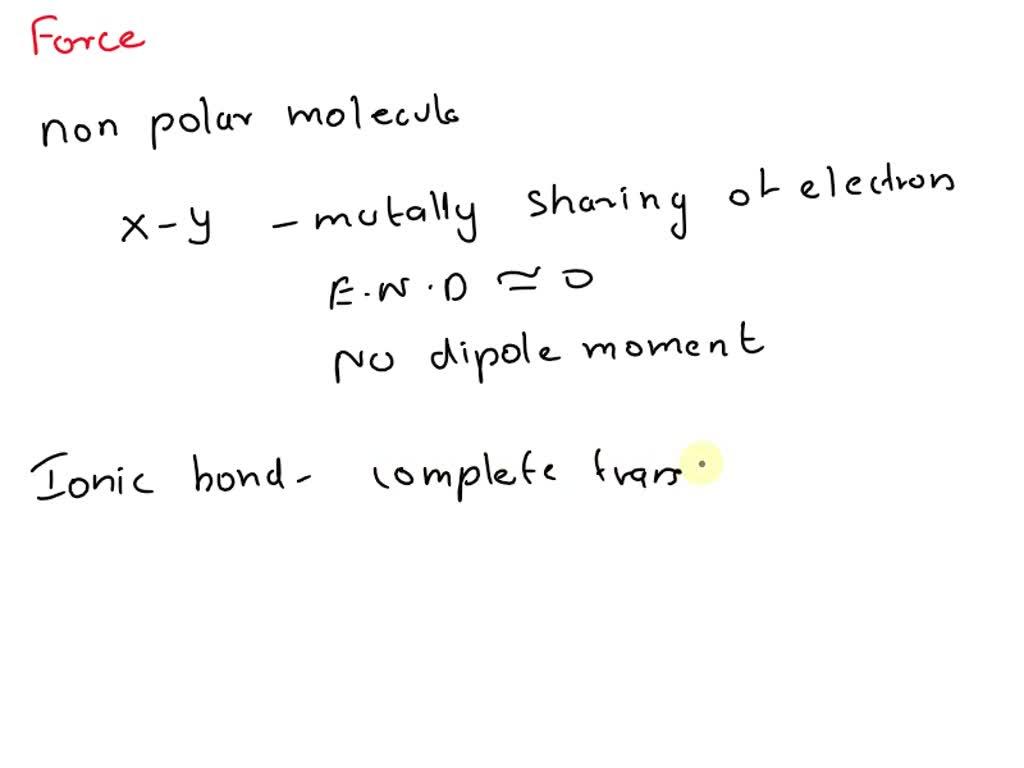 Force
non polar molecule
x-y - mutally sharing of electron
E.N.D ≃ 0
No dipole moment
Ionic bond - complete trans